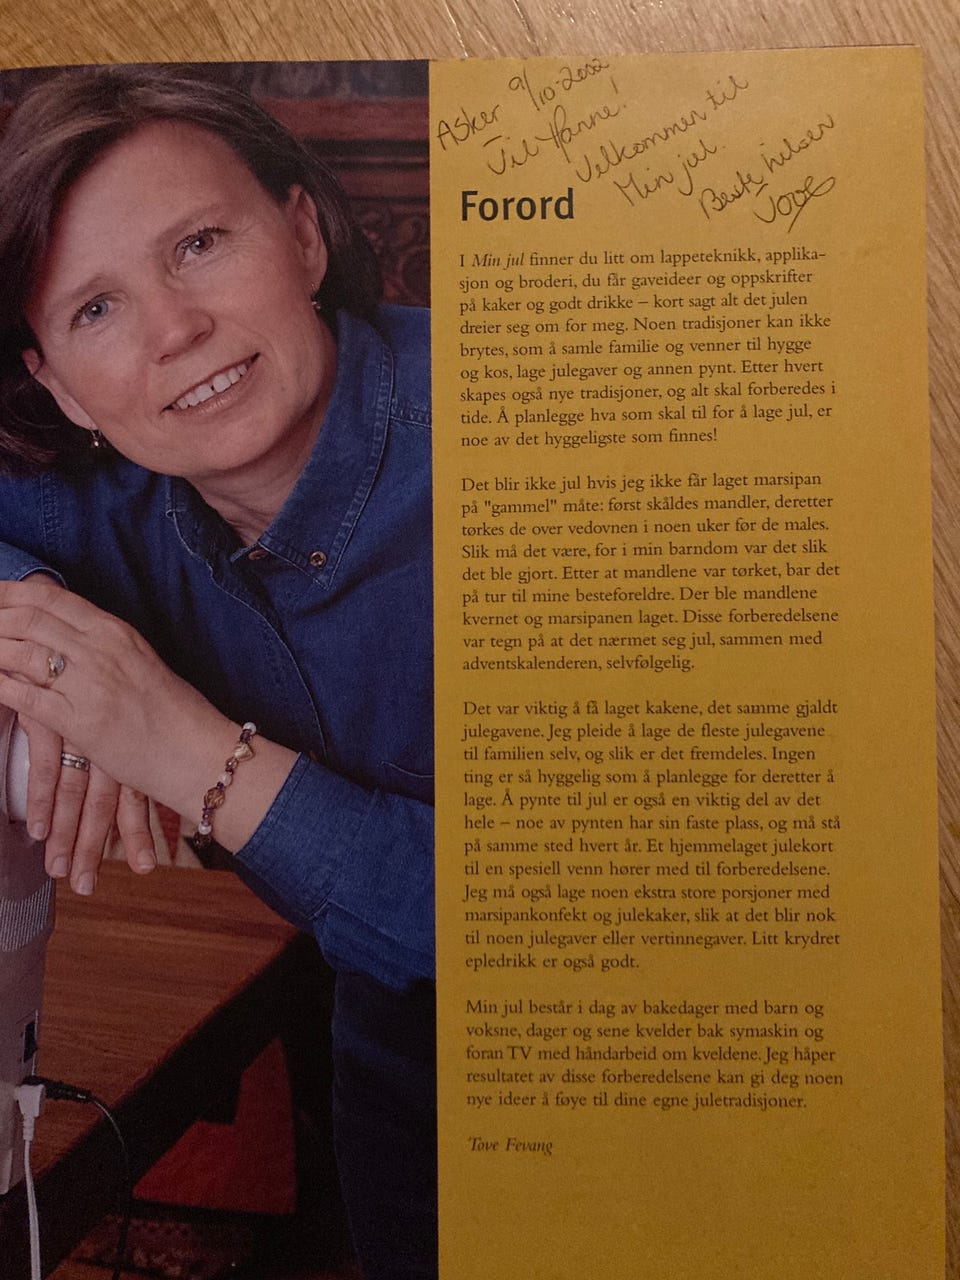 Asker 9/10-2002
Til Hanne!
Velkommen til
Min jul.
Beste hilsen
Tove
Forord
I Min jul finner du litt om lappeteknikk, applika-
sjon og broderi, du får gaveideer og oppskrifter
på kaker og godt drikke – kort sagt alt det julen
dreier seg om for meg. Noen tradisjoner kan ikke
brytes, som å samle familie og venner til hygge
og kos, lage julegaver og annen pynt. Etter hvert
skapes også nye tradisjoner, og alt skal forberedes i
tide. Å planlegge hva som skal til for å lage jul, er
noe av det hyggeligste som finnes!
Det blir ikke jul hvis jeg ikke får laget marsipan
på "gammel" måte: først skåldes mandler, deretter
tørkes de over vedovnen i noen uker før de males.
Slik må det være, for i min barndom var det slik
det ble gjort. Etter at mandlene var tørket, bar det
på tur til mine besteforeldre. Der ble mandlene
kvernet og marsipanen laget. Disse forberedelsene
var tegn på at det nærmet seg jul, sammen med
adventskalenderen, selvfølgelig.
Det var viktig å få laget kakene, det samme gjaldt
julegavene. Jeg pleide å lage de fleste julegavene
til familien selv, og slik er det fremdeles. Ingen
ting er så hyggelig som å planlegge for deretter å
lage. Å pynte til jul er også en viktig del av det
hele – noe av pynten har sin faste plass, og må stå
på samme sted hvert år. Et hjemmelaget julekort
til en spesiell venn hører med til forberedelsene.
Jeg må også lage noen ekstra store porsjoner med
marsipankonfekt og julekaker, slik at det blir nok
til noen julegaver eller vertinnegaver. Litt krydret
epledrikk er også godt.
Min jul består i dag av bakedager med barn og
voksne, dager og sene kvelder bak symaskin og
foran TV med håndarbeid om kveldene. Jeg håper
resultatet av disse forberedelsene kan gi deg noen
nye ideer å føye til dine egne juletradisjoner.
Tove Fevang